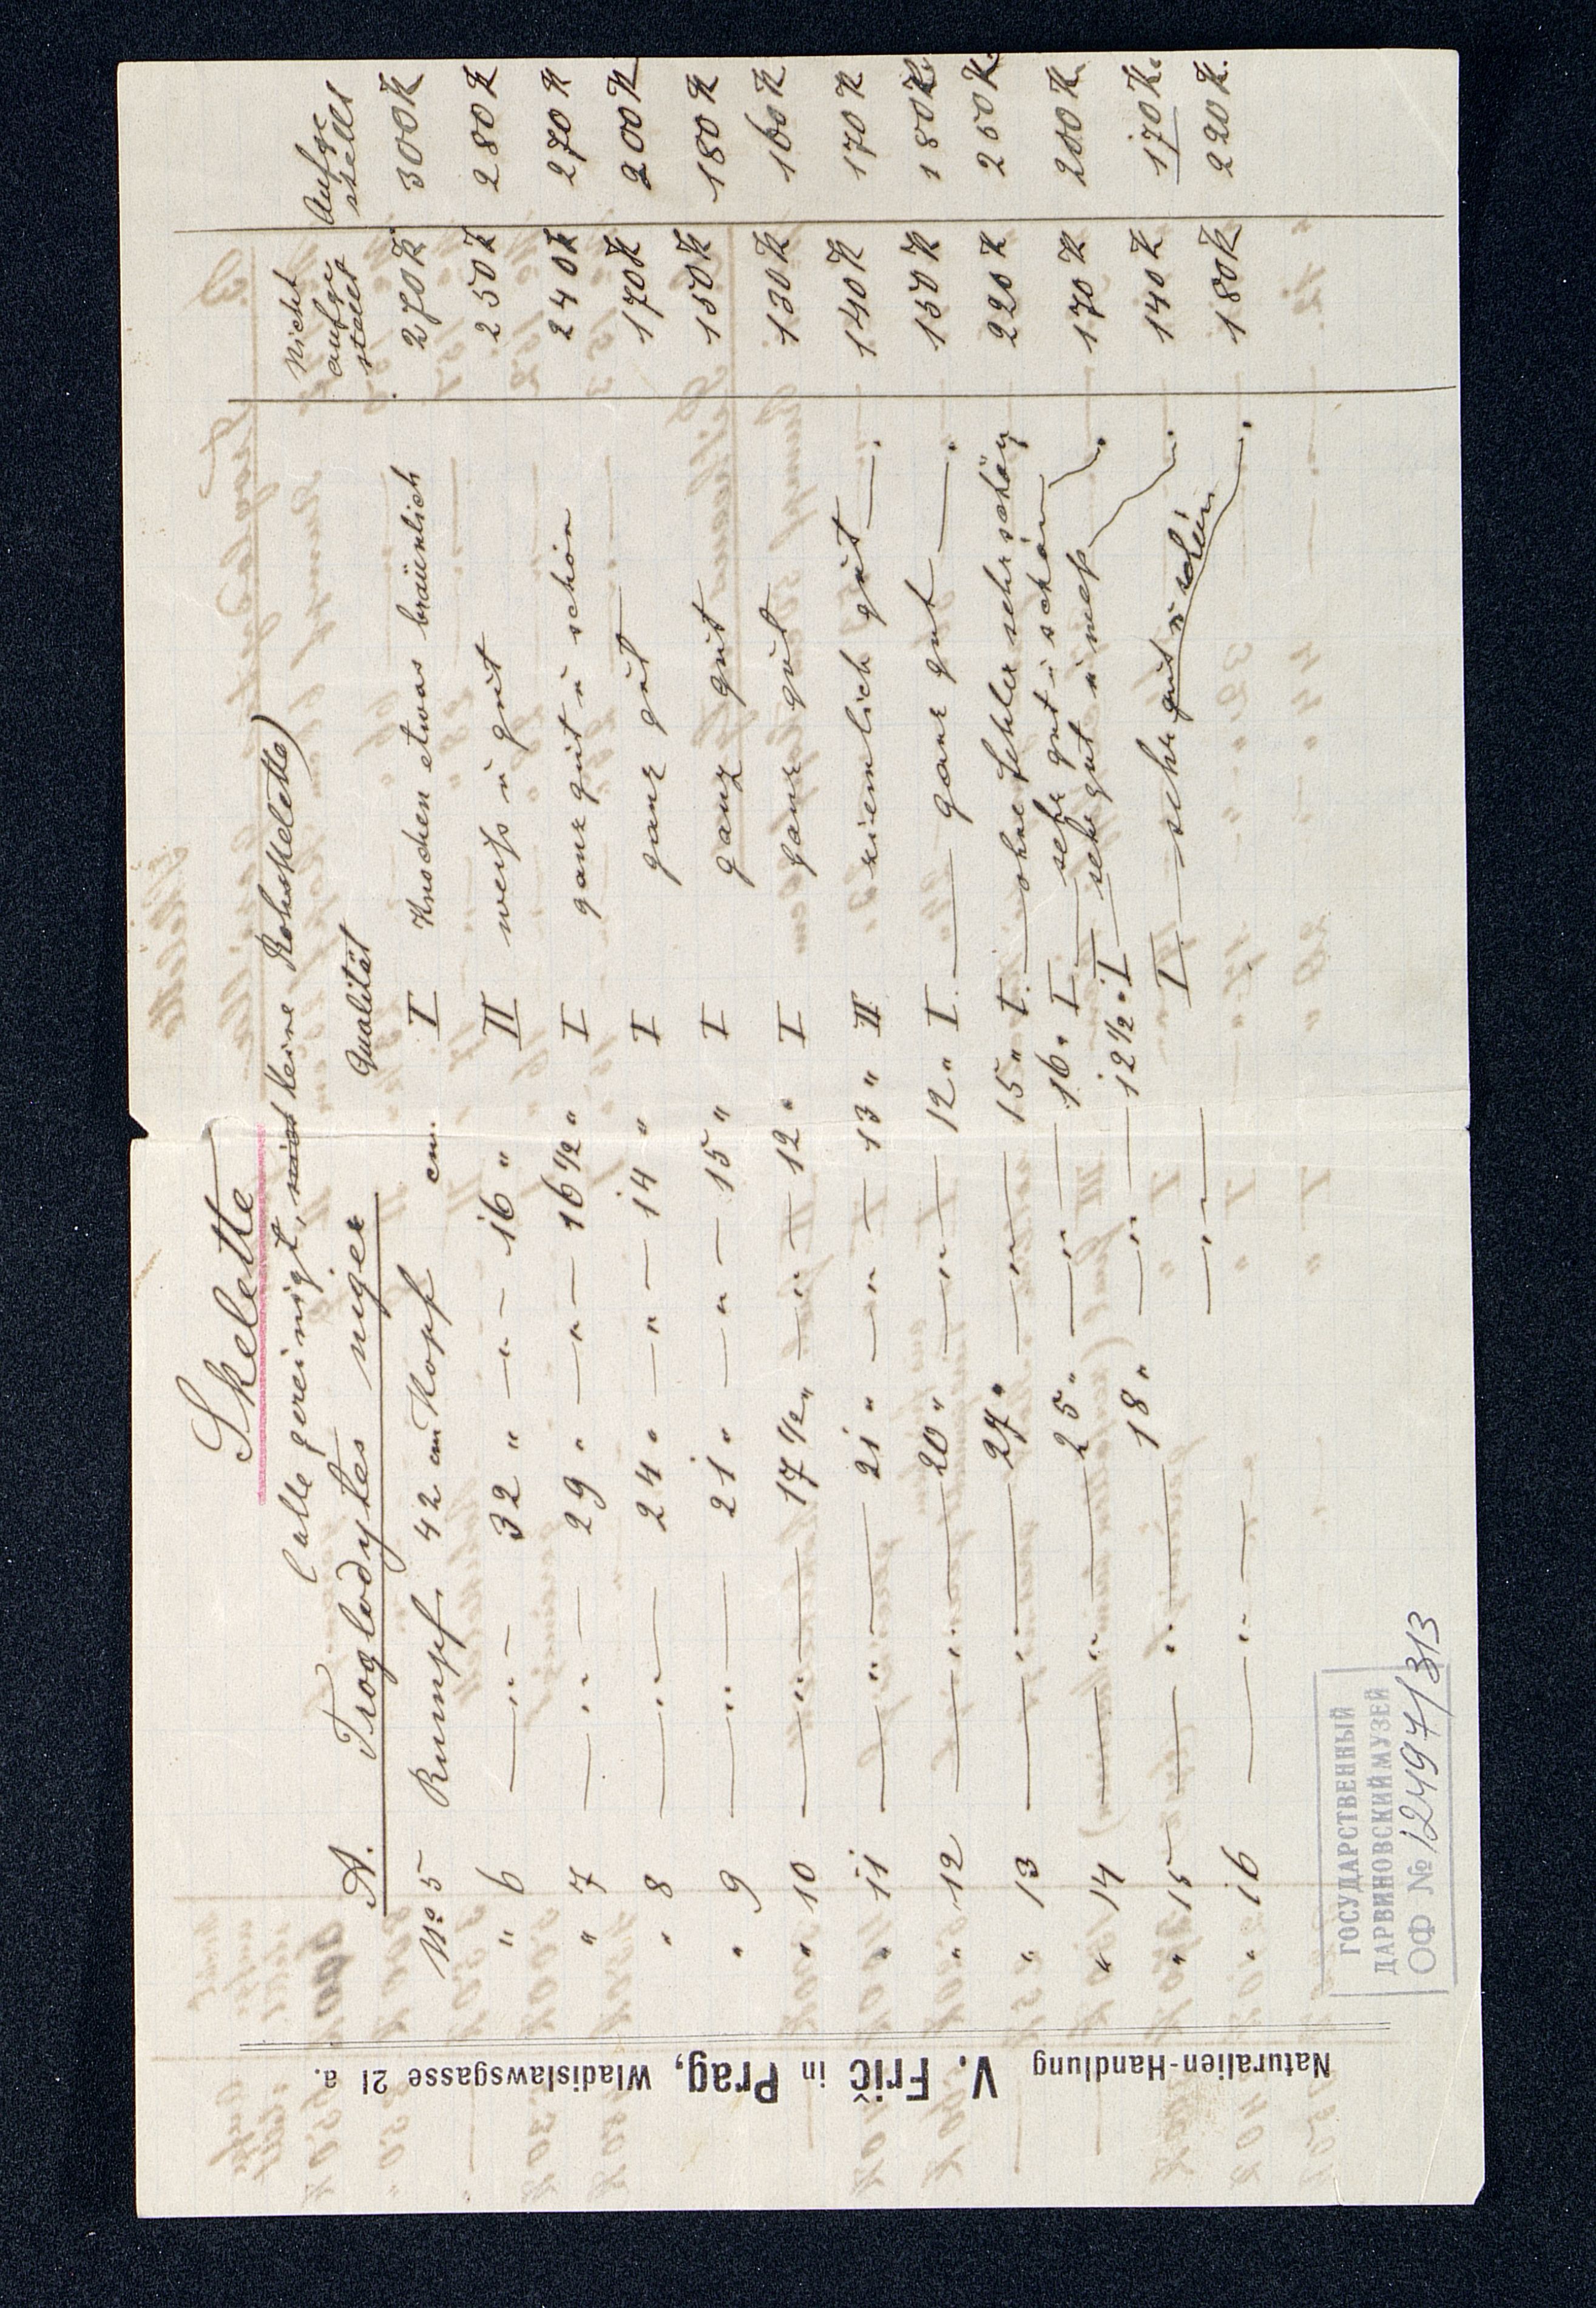 Skelette
(alle gereinigt, keine Rohskelette)
A. Troglodytes niger
Qualität
Nicht aufge stellt
Aufge stellt
No 5 Rumpf 42 cm Kopf cm. I Knochen etwas bräunlich 270 K 300 K
" 6 — " — 32 " — " — 16 " II weiss ŭ gŭt 250 K 280 K
" 7 — " — 29 " — " — 16 ½ " I ganz gŭt ŭ schön 240 K 270 K
" 8 — " — 24 " — " — 14 " I ganz gŭt 170 K 200 K
" 9 — " — 21 " — " — 15 " I ganz gŭt 150 K 180 K
" 10 — " — 17 ½ " — " — 12 " I ganz gŭt 130 K 160 K
" 11 — " — 21 " — " — 13 " II ziemlich gŭt —. 140 K 170 K
" 12 — " — 20 " — " — 12 " I. — ganz gut —. 150 K 180 K.
" 13 — " — 27 " — " — 15 " I. — ohne Fehler sehr schön 220 K 250 K.
" 14 — " — 25 " — " — 16 " I. — sehr gut ŭ schön —. 170 K 200 K.
" 15 — " — 18 " — " — 12 ½ " I — sehr gŭt ŭ weiss —. 140 K 170 K.
" 16 — " — — " — I — sehr gŭt ŭ schön —. 180 K 220 K.
Naturalien-Handlung V. Frič in Prag, Wladislawsgasse 21 a.
ГОСУДАРСТВЕННЫЙ
ДАРВИНОВСКИЙ МУЗЕЙ
ОФ № 12497/313